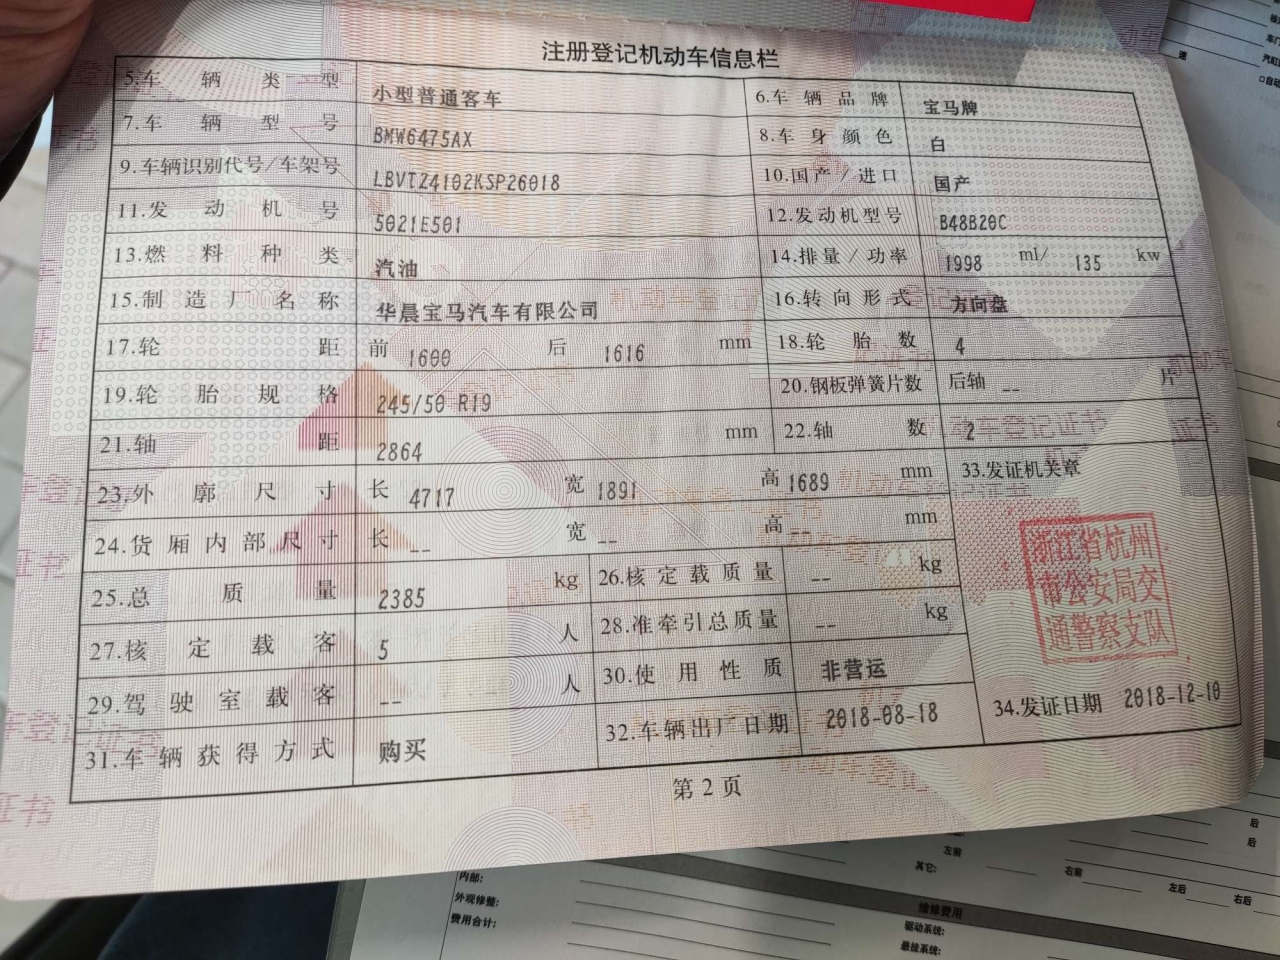 注册登记机动车信息栏
5.车辆类型 小型普通客车 6.车辆品牌 宝马牌
7.车辆型号 BMW6475AX 8.车身颜色 白
9.车辆识别代号/车架号 LBVTZ4102KSP26018 10.国产/进口 国产
11.发动机号 5021E501 12.发动机型号 B48B20C
13.燃料种类 汽油 14.排量/功率 1998 ml/ 135 kw
15.制造厂名称 华晨宝马汽车有限公司 16.转向形式 方向盘
17.轮距 前 1600 后 1616 mm 18.轮胎数 4
19.轮胎规格 245/50 R19 20.钢板弹簧片数 后轴 -- 片
21.轴距 2864 mm 22.轴数 2
23.外廓尺寸 长 4717 宽 1891 高 1689 mm 33.发证机关章
24.货厢内部尺寸 长 -- 宽 -- 高 -- mm
浙江省杭州
市公安局交
通警察支队
25.总质量 2385 kg 26.核定载质量 -- kg
27.核定载客 5 人 28.准牵引总质量 -- kg
29.驾驶室载客 -- 人 30.使用性质 非营运
31.车辆获得方式 购买 32.车辆出厂日期 2018-08-18 34.发证日期 2018-12-10
第2页
内部:
外观修整:
费用合计:
左前
其它:
右前
左后
右后
后
后
维修费用
驱动系统:
悬挂系统: